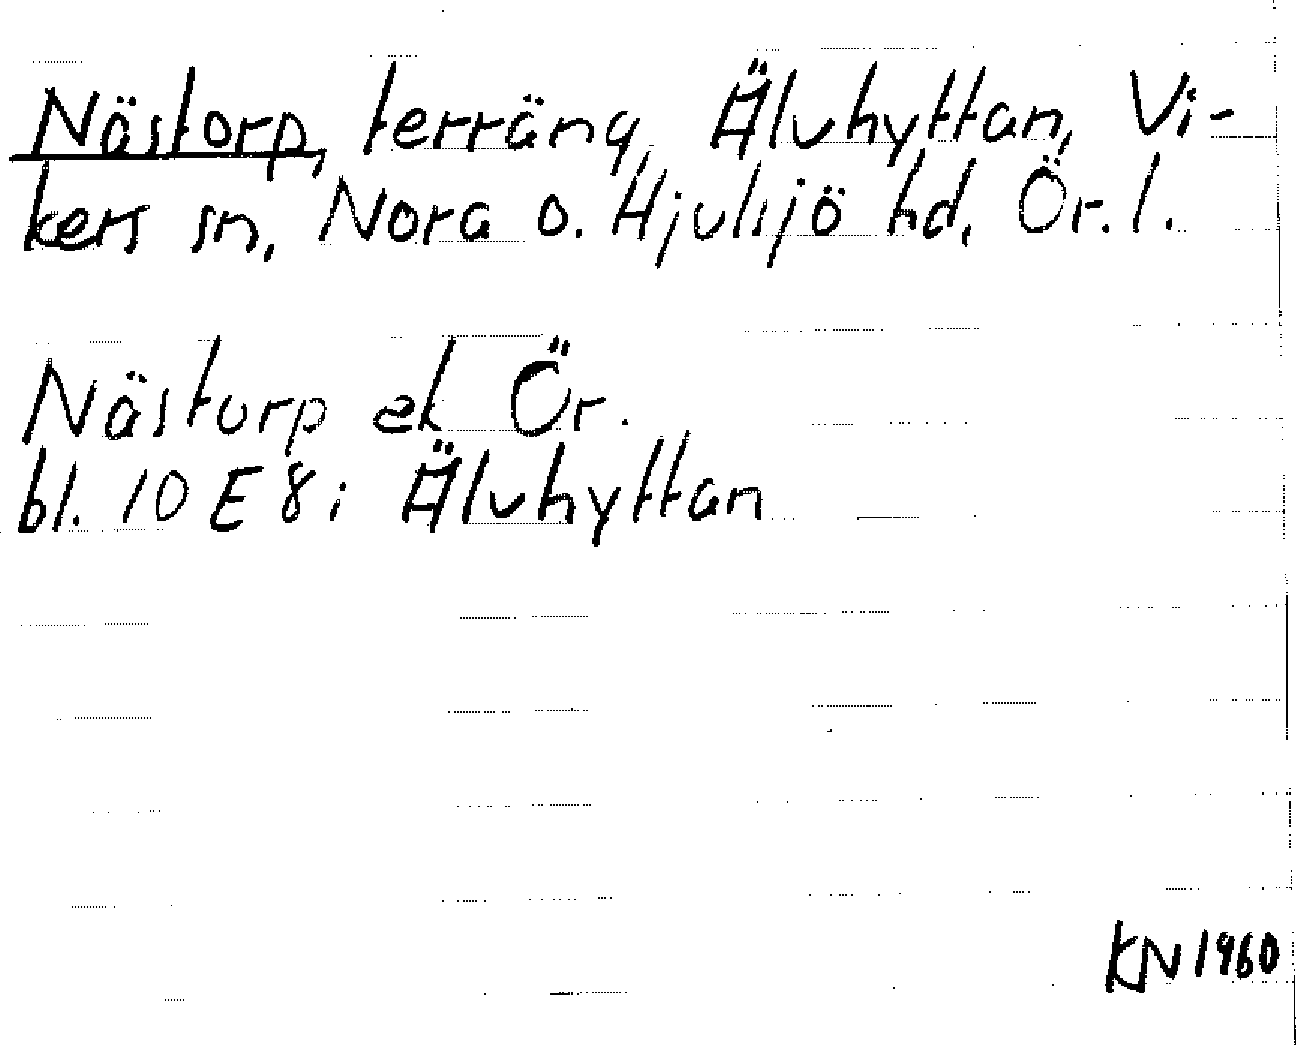 Nästorp, terräng, Älvhyttan, Vi-
kers sn, Nora o. Hjulsjö hd, Ör. l.
Nästorp ek Ör.
bl. 10 E 8 i Älvhyttan
KN 1960